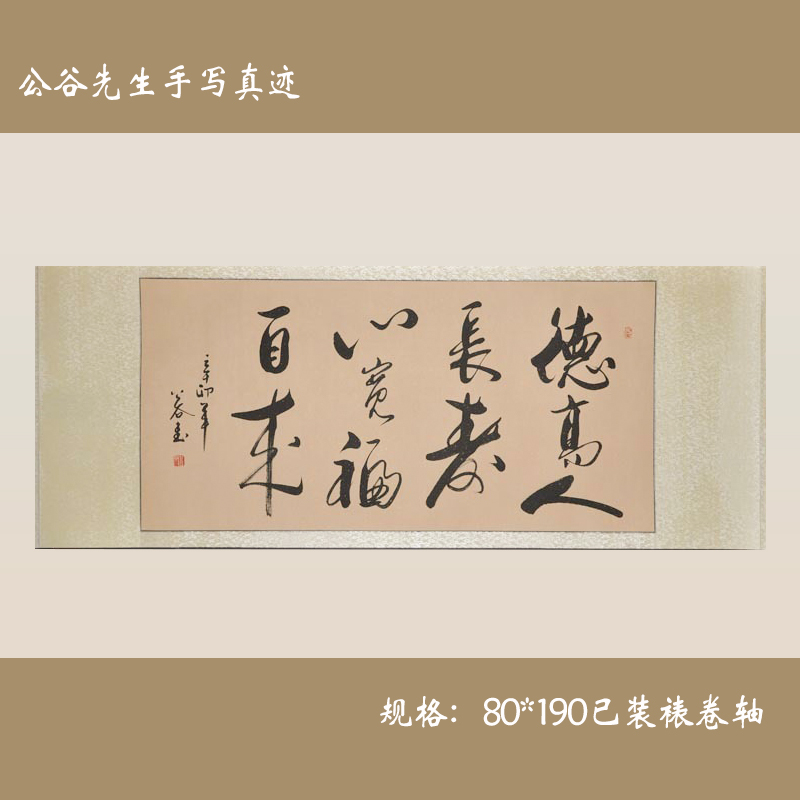 公谷先生手写真迹
德高人
長寿
心宽福
自来
辛卯年
公谷书
规格：80*190已装裱卷轴